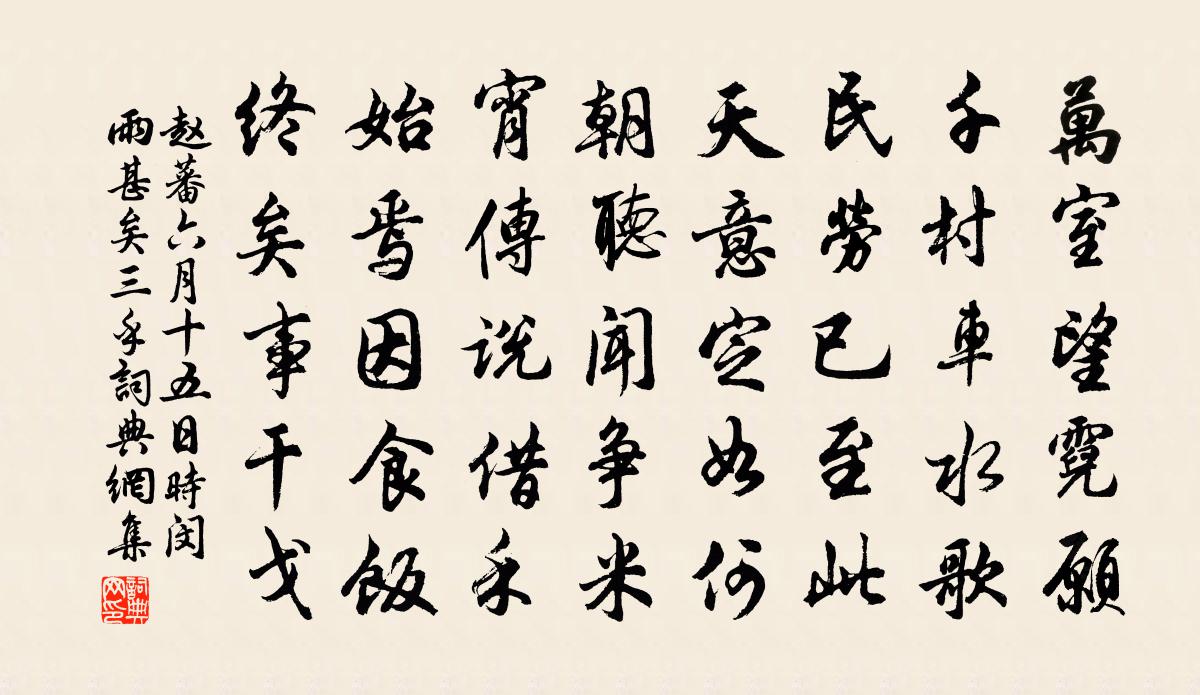 萬室望霓願
千村車水歌
民勞已至此
天意定如何
朝聽聞爭米
宵傳說借禾
始焉因食飯
終矣事干戈
赵蕃六月十五日時闵
雨甚矣三手詞典網集
詞典網印